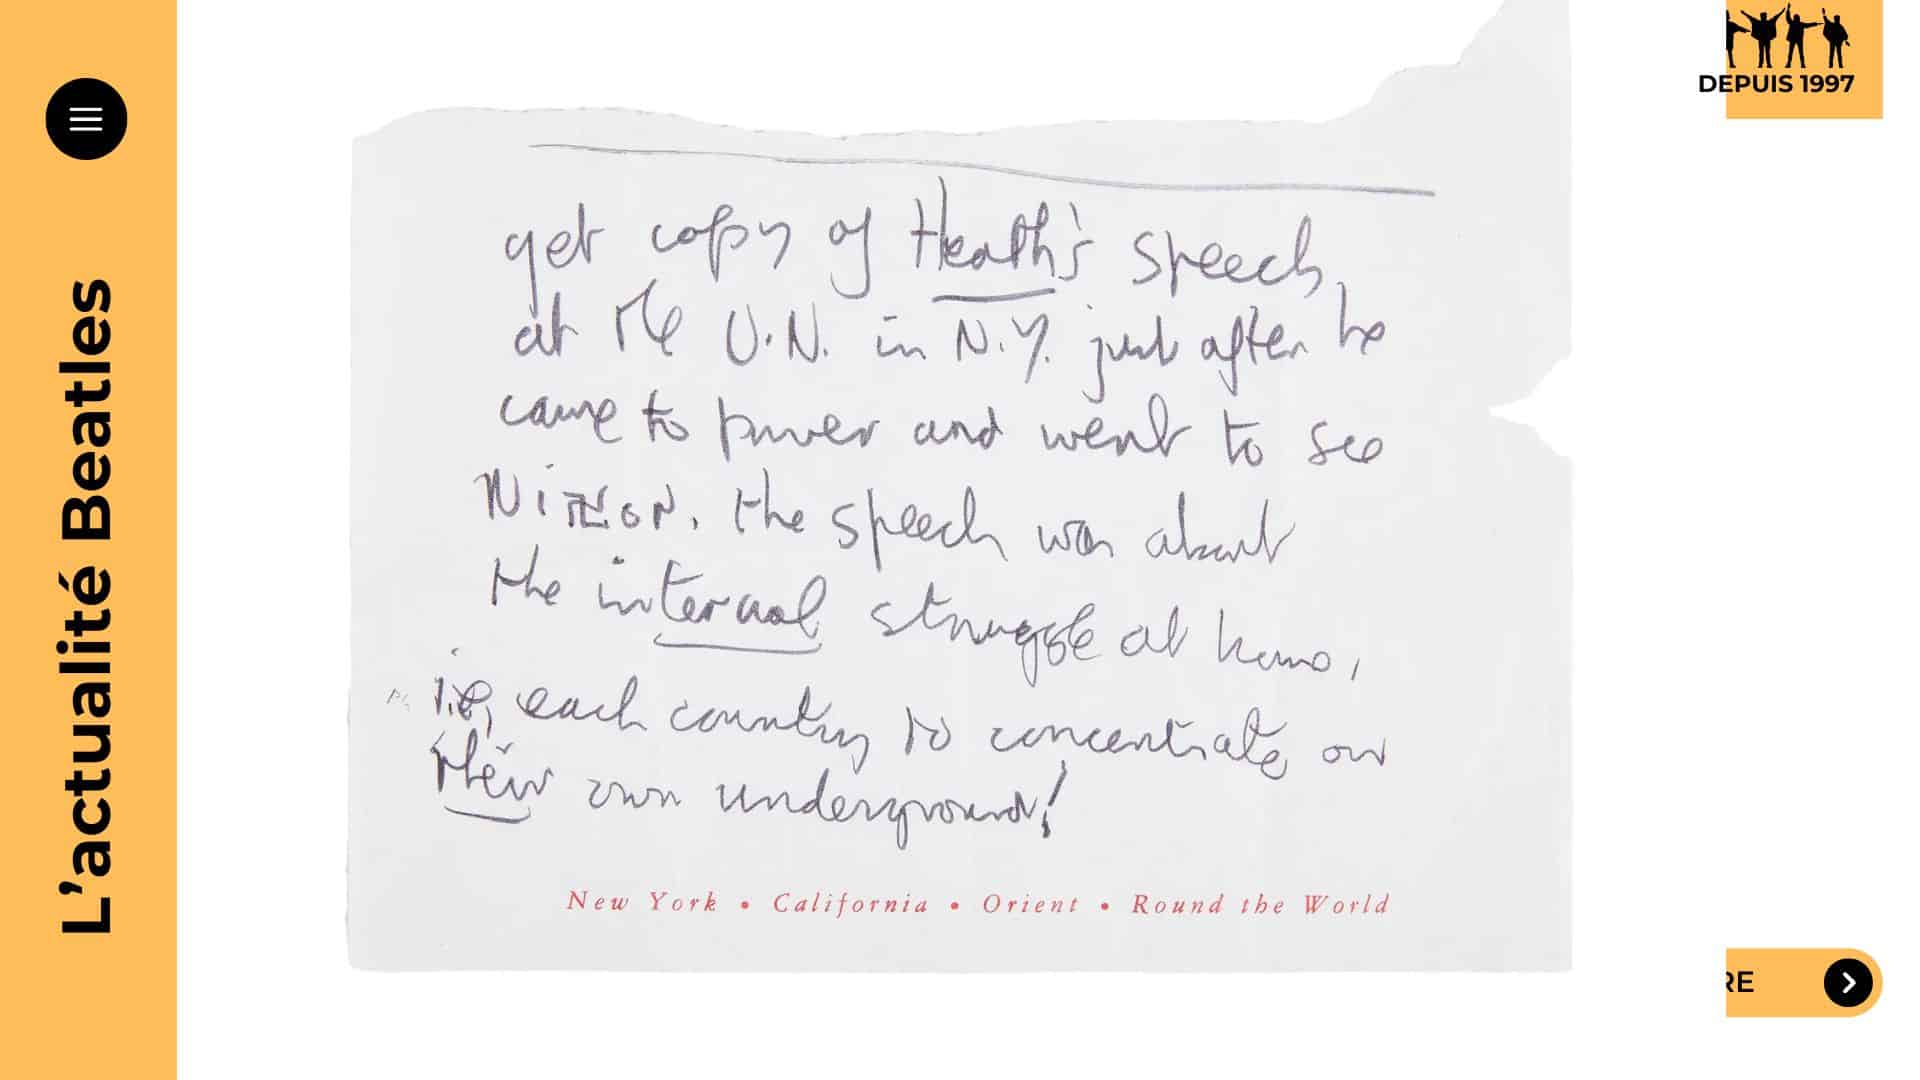 L'actualité Beatles
DEPUIS 1997
get copy of Heath's speech,
at the U.N. in N.Y. just after he
came to power and went to see
NIXON. the speech was about
the internal struggle at home,
i.e, each country to concentrate on
their own underground!
New York • California • Orient • Round the World
RE